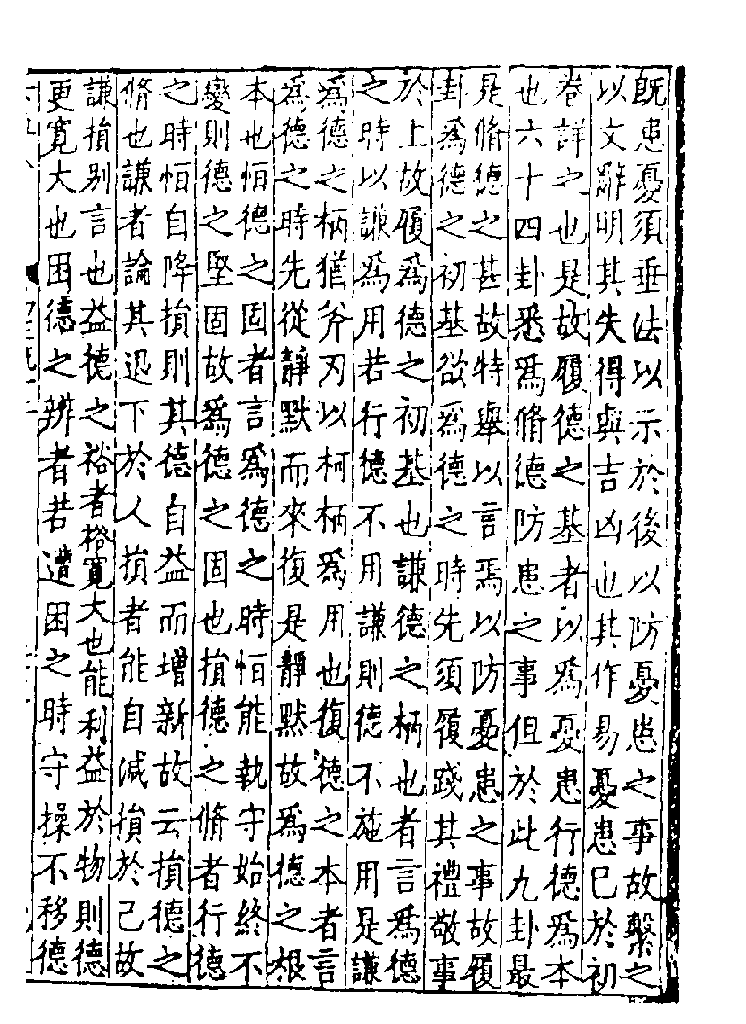 既患憂須垂法以示於後以防憂患之事故繫之
以文辭明其失得與吉凶也其作易憂患已於初
卷詳之也是故履德之基者以爲憂患行德爲本
也六十四卦悉爲脩德防患之事但於此九卦最
是脩德之甚故特舉以言焉以防憂患之事故履
卦爲德之初基欲爲德之時先須履踐其禮敬事
於上故履爲德之初基也謙德之柄也者言爲德
之時以謙爲用若行德不用謙則德不施用是謙
爲德之柄猶斧刃以柯柄爲用也復德之本者言
爲德之時先從靜默而來復是靜默故爲德之根
本也恒德之固者言爲德之時恒能執守始終不
變則德之堅固故爲德之固也損德之脩者行德
之時恒自降損則其德自益而增新故云損德之
脩也謙者論其退下於人損者能自減損於己故
謙損別言也益德之裕者裕寬大也能利益於物則德
更寬大也困德之辨者若遭困之時守操不移德